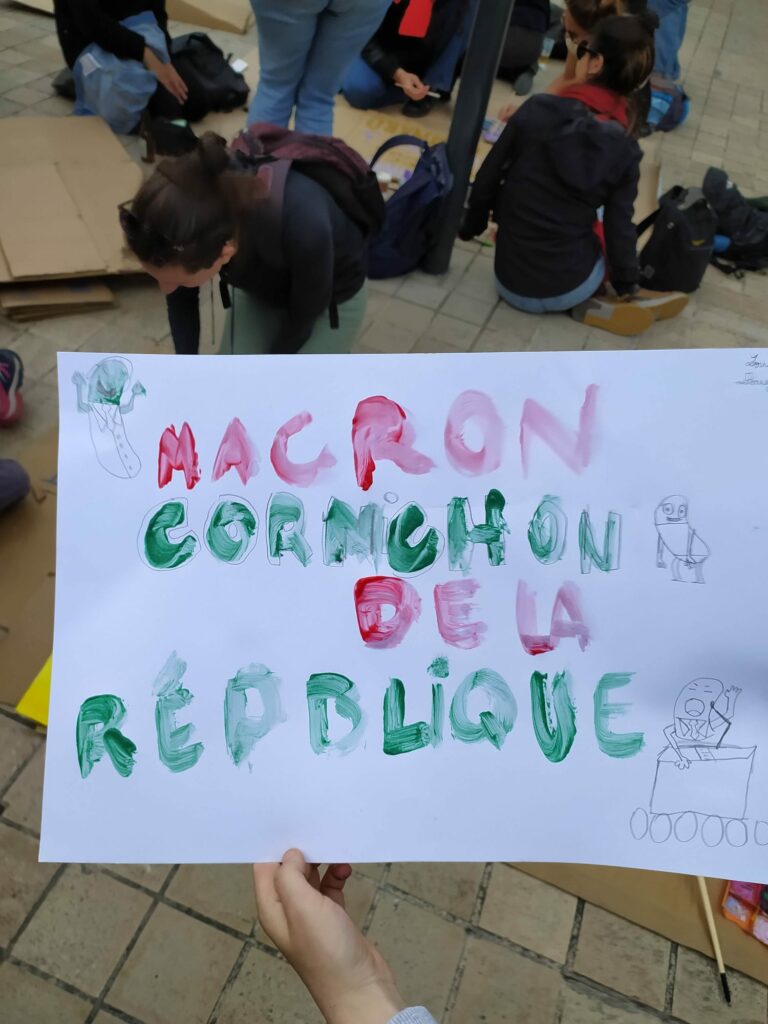 MACRON
CORNiCHON
DE LA
RÉPBLiQUE